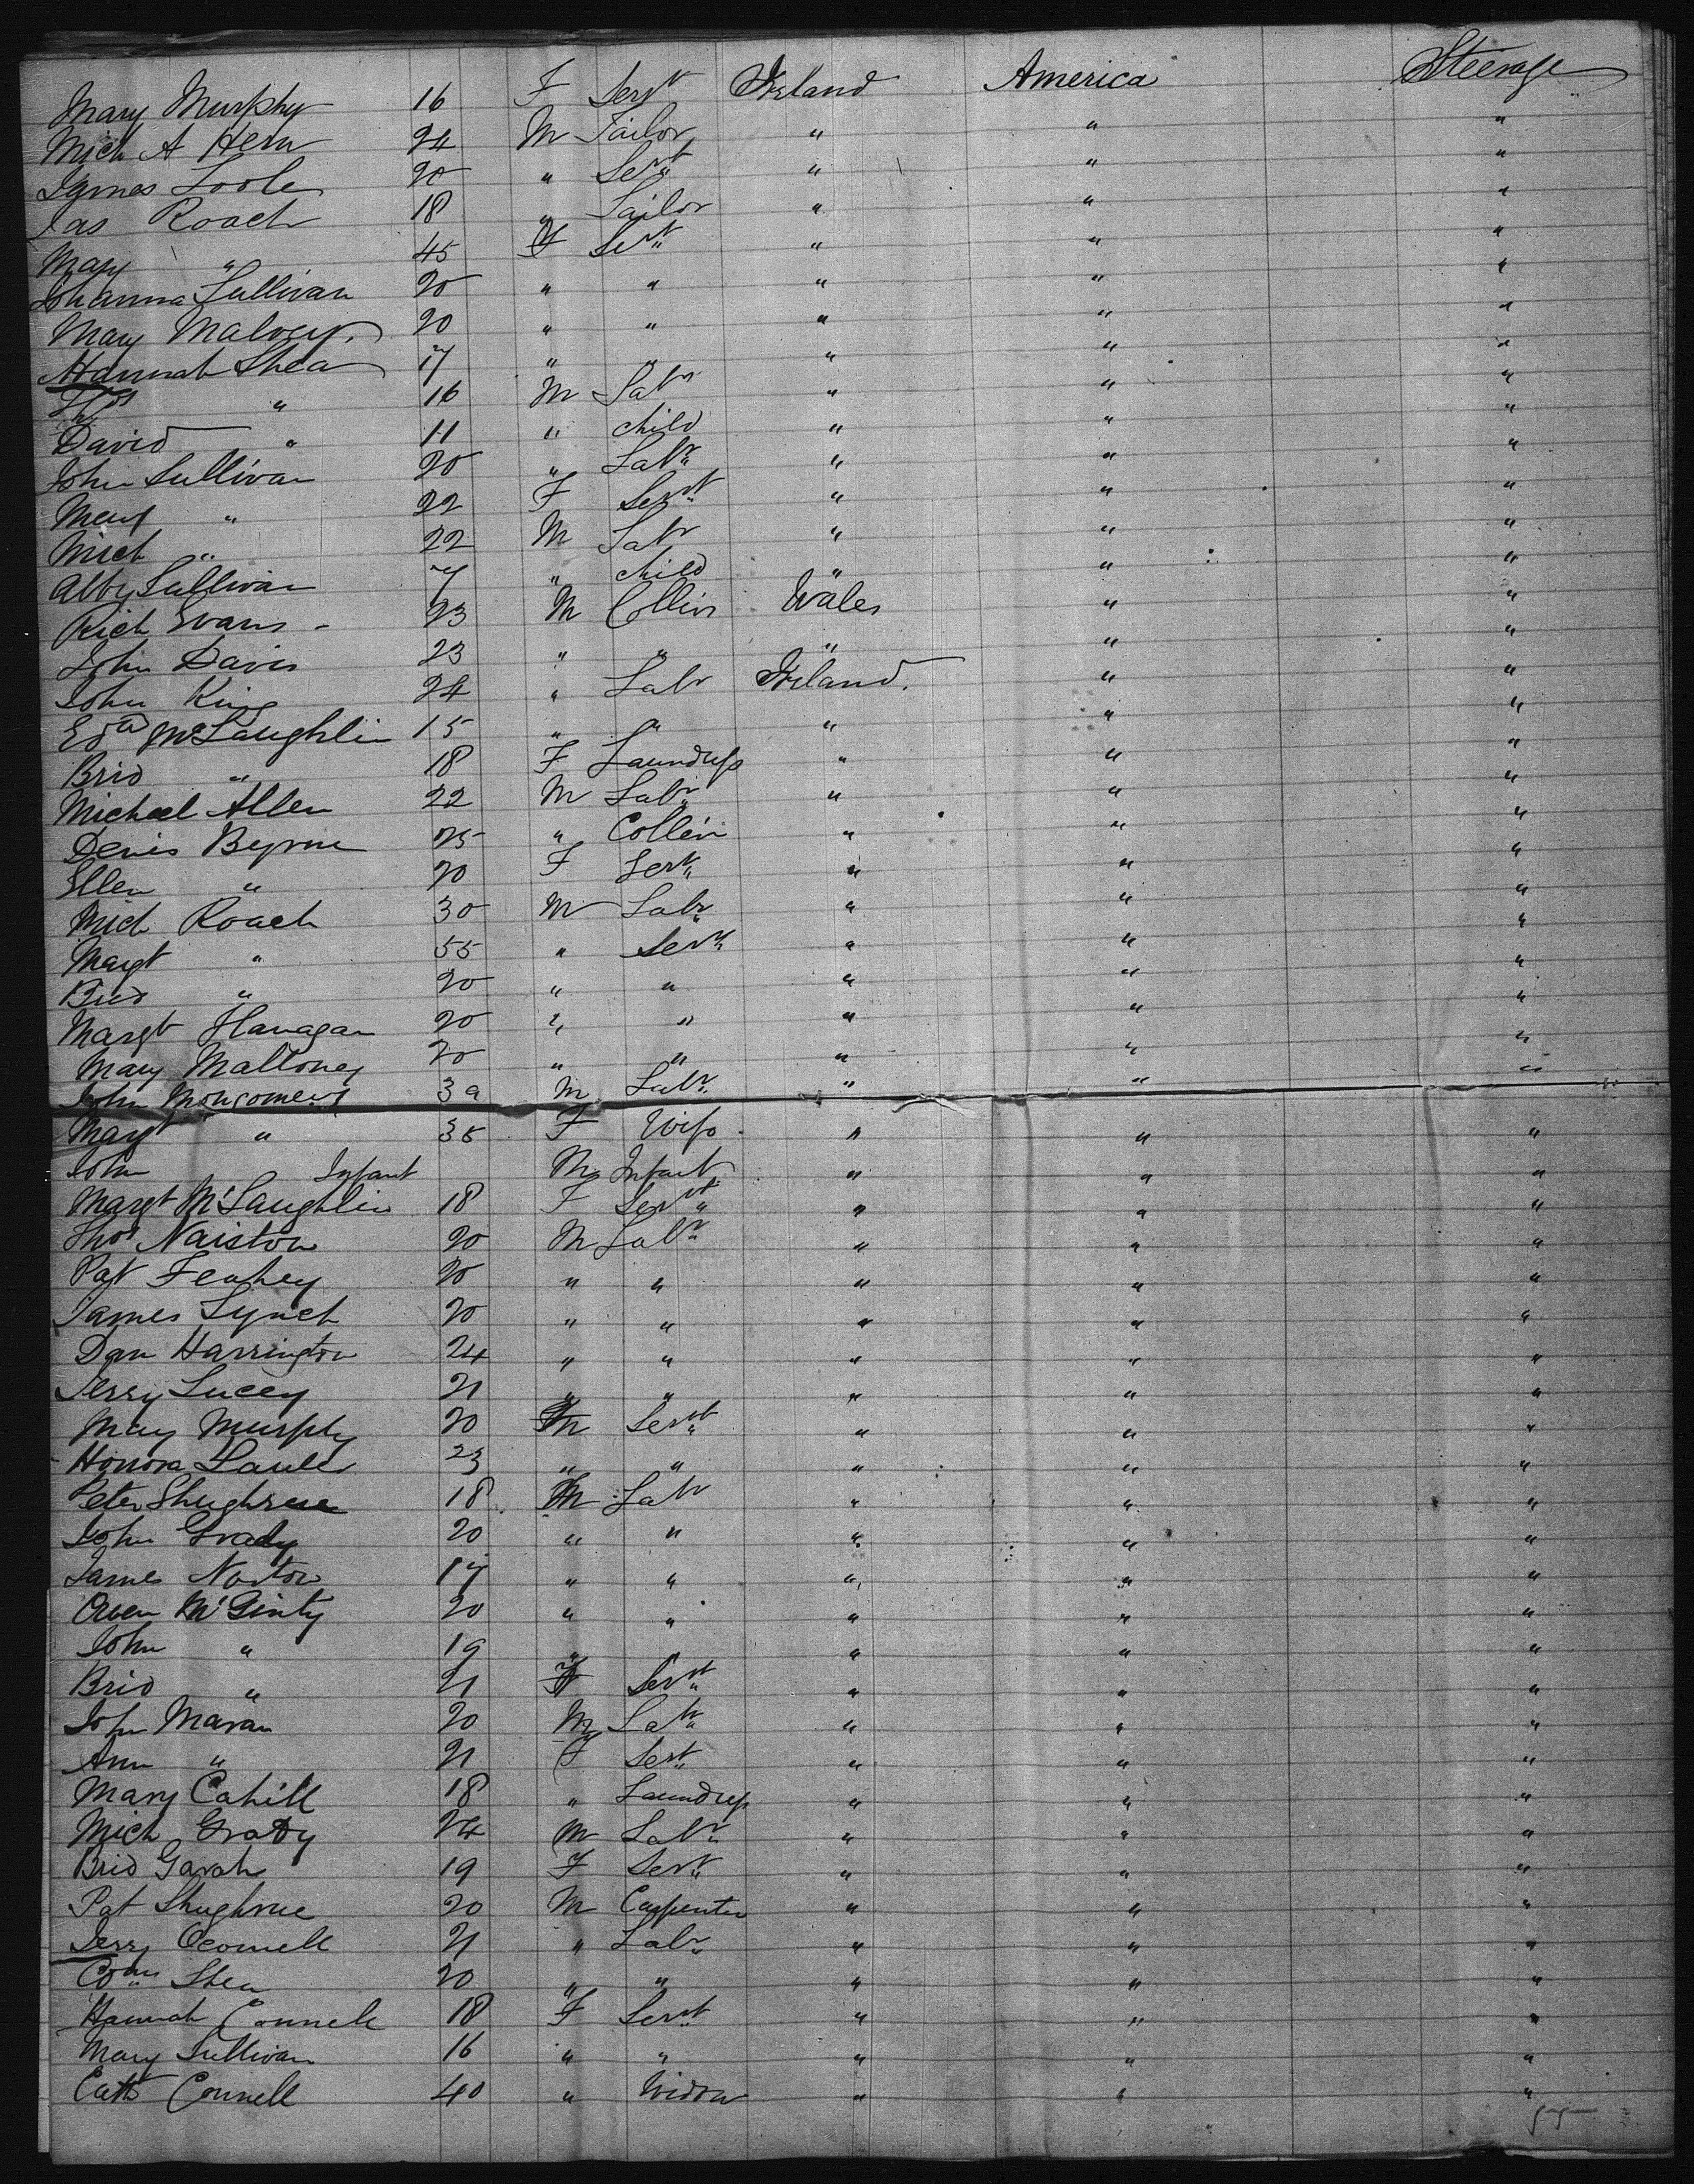 Mary Murphy 16 F Servt Ireland America Steerage
Mich A Hern 24 M Tailor " " "
James Toole 20 " Servt " " "
Jas Roach 18 " Sailor " " "
Mary " 45 F Servt " " "
Johanna Sullivan 20 " " " " "
Mary Malvey 20 " " " " "
Hannah Shea 17 " " " " "
Thos " 16 M Labr " " "
David " 11 " child " " "
John Sullivan 20 " Labr " " "
Mary " 22 F Servt " " "
Mich " 22 M Labr " " "
Abby Sullivan 7 " child " " "
Rich Evans 23 M Collier Wales " "
John Davis 23 " " " " "
John King 24 " Labr Ireland " "
Edwd McLaughlin 15 " " " " "
Brid " 18 F Laundress " " "
Michael Allen 22 M Labr " " "
Denis Byrne 25 " Collier " " "
Ellen " 20 F Servt " " "
Mich Roach 30 M Labr " " "
Margt " 55 " Servt " " "
Brid " 20 " " " " "
Margt Flanagan 20 " " " " "
Mary Malloney 20 " " " " "
John Mongomery 39 M Labr " " "
Margt " 35 F Wife " " "
John Infant M Infant " " "
Margt McLaughlin 18 F Servt " " "
Thos Naiston 20 M Labr " " "
Pat Feahey 20 " " " " "
James Lynch 20 " " " " "
Dan Harrington 24 " " " " "
Jerry Lucey 21 " " " " "
Mary Murphy 20 Servt " " "
Honora Lawler 23 " " " " "
Peter Shughrue 18 M Labr " " "
John Grady 20 " " " " "
James Norton 17 " " " " "
Owen McGinty 20 " " " " "
John " 19 " " " " "
Brid " 21 F Servt " " "
John Maran 20 M Labr " " "
Ann " 21 F Servt " " "
Mary Cahill 18 " Laundress " " "
Mich Grady 24 M Labr " " "
Brid Garah 19 F Servt " " "
Pat Shughrue 20 M Carpenter " " "
Jerry Oconnell 21 " Labr " " "
Corns Shea 20 " " " " "
Hannah Connell 18 F Servt " " "
Mary Sullivan 16 " " " " "
Cath Connell 40 " Widow " " "